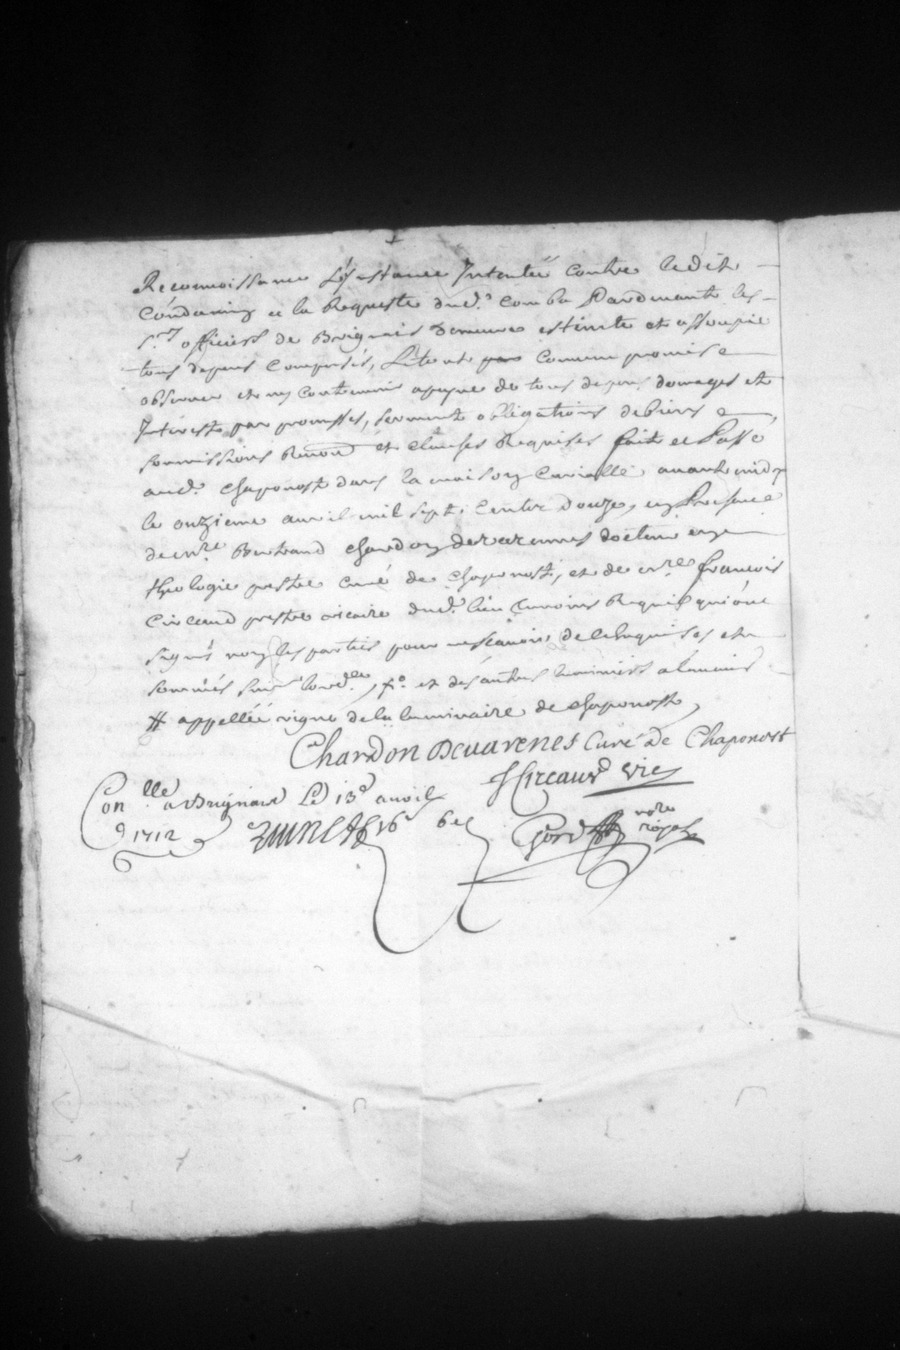 Reconnoissance L'Instance Intentée contre ledit
Condamin a la Requeste dud. Comba Pardevant les
Srs officiers de Brignais demeure estinte et assoupie
tous depens Compensés, Le tout comme promis
observer et ny contrevenir a peyne de tous depens domages et
Interest par promesses, serment obligations de biens
soumissions Renon. et clauses Requises fait et Passé
aud. Chaponost dans la maison Curialle avant midy
le onzieme auvril mil sept Cents Douze, en Presence
de mre Bertrand Chardon de varennes docteur en
theologie prestre curé de Chaponost, et de mre francois
Circaud prestre vicaire dud. lieu temoins Requis qui ont
signés non les parties pour ne scavoir de ce Enquises et
sommés et des autres luminiers
# appellée vigne de la luminaire de Chaponost
Chardon Devarenes Curé de Chaponost
Circaud vic
Conlle a Brignais Le 13e avril
1712
notre
royal